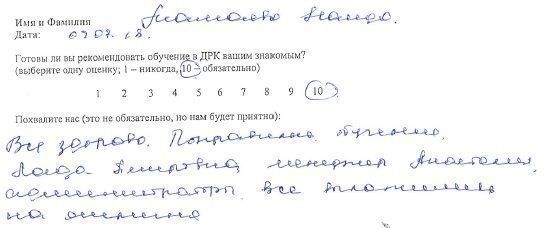 Имя и Фамилия
Дата: 09.07.18.
Готовы ли вы рекомендовать обучение в ДРК вашим знакомым?
(выберите одну оценку; 1 – никогда, 10 – обязательно)
1 2 3 4 5 6 7 8 9 10
Похвалите нас (это не обязательно, но нам будет приятно):
Все здорово. Понравилось обучение.
менеджер Анастасия,
администраторы, все
на отлично